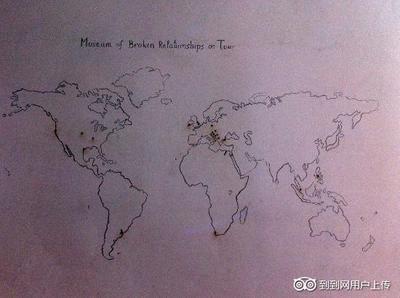 Museum of Broken Relationships on Tour
到到网用户上传